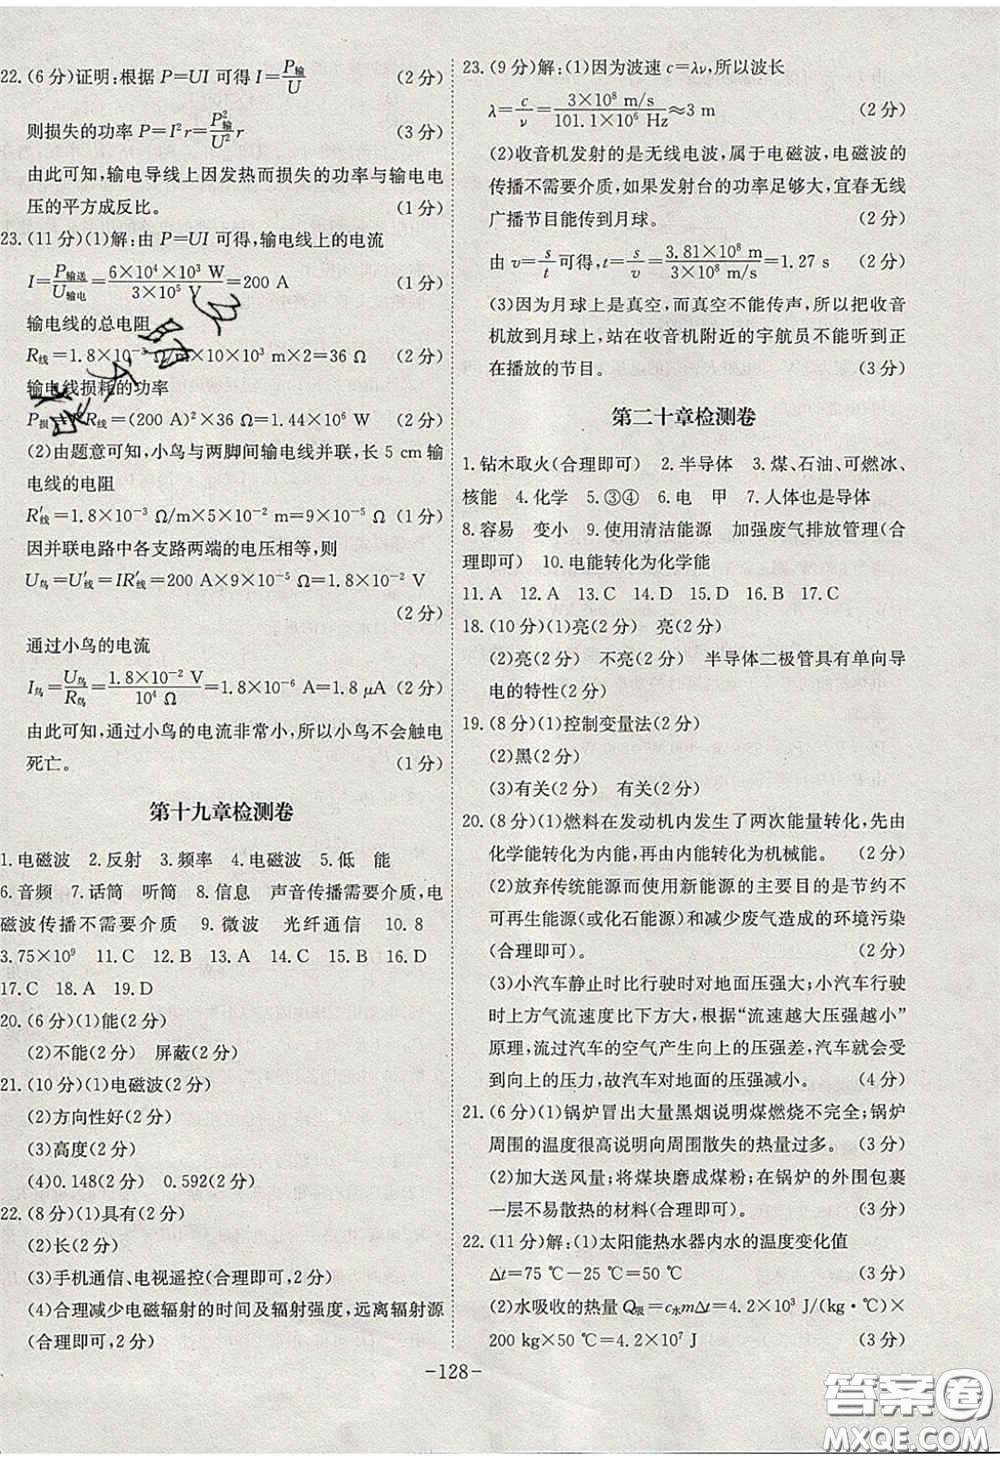 22.(6分)证明:根据 P=UI 可得 I=P输/U (2分)
则损失的功率 P=I²r=P²输/U² r (3分)
由此可知,输电导线上因发热而损失的功率与输电电
压的平方成反比。 (1分)
23.(11分)(1)解:由 P=UI 可得,输电线上的电流
I=P输送/U输电=6×10⁴×10³ W/3×10⁵ V=200 A (1分)
输电线的总电阻
R线=1.8×10⁻³ Ω/m×10×10³ m×2=36 Ω (2分)
输电线损耗的功率
P损=I²R线=(200 A)²×36 Ω=1.44×10⁶ W (2分)
(2)由题意可知,小鸟与两脚间输电线并联,长5 cm输
电线的电阻
R′线=1.8×10⁻³ Ω/m×5×10⁻² m=9×10⁻⁵ Ω (1分)
因并联电路中各支路两端的电压相等,则
U鸟=U′线=IR′线=200 A×9×10⁻⁵ Ω=1.8×10⁻² V
(2分)
通过小鸟的电流
I鸟=U鸟/R鸟=1.8×10⁻² V/10⁴ Ω=1.8×10⁻⁶ A=1.8 μA (2分)
由此可知,通过小鸟的电流非常小,所以小鸟不会触电
死亡。 (1分)
第十九章检测卷
1.电磁波 2.反射 3.频率 4.电磁波 5.低 能
6.音频 7.话筒 听筒 8.信息 声音传播需要介质,电
磁波传播不需要介质 9.微波 光纤通信 10.8
3.75×10⁹ 11.C 12.B 13.A 14.D 15.B 16.B
17.C 18.A 19.D
20.(6分)(1)能(2分)
(2)不能(2分) 屏蔽(2分)
21.(10分)(1)电磁波(2分)
(2)方向性好(2分)
(3)高度(2分)
(4)0.148(2分) 0.592(2分)
22.(8分)(1)具有(2分)
(2)长(2分)
(3)手机通信、电视遥控(合理即可,2分)
(4)合理减少电磁辐射的时间及辐射强度,远离辐射源
(合理即可,2分)
23.(9分)解:(1)因为波速 c=λν,所以波长
λ=c/ν=3×10⁸ m/s/101.1×10⁶ Hz≈3 m (2分)
(2)收音机发射的是无线电波,属于电磁波,电磁波的
传播不需要介质,如果发射台的功率足够大,宜春无线
广播节目能传到月球。 (2分)
由 v=s/t 可得,t=s/v=3.81×10⁸ m/3×10⁸ m/s=1.27 s (2分)
(3)因为月球上是真空,而真空不能传声,所以把收音
机放到月球上,站在收音机附近的宇航员不能听到正
在播放的节目。 (3分)
第二十章检测卷
1.钻木取火(合理即可) 2.半导体 3.煤、石油、可燃冰、
核能 4.化学 5.③④ 6.电 甲 7.人体也是导体
8.容易 变小 9.使用清洁能源 加强废气排放管理(合
理即可) 10.电能转化为化学能
11.A 12.A 13.C 14.D 15.D 16.B 17.C
18.(10分)(1)亮(2分) 亮(2分)
(2)亮(2分) 不亮(2分) 半导体二极管具有单向导
电的特性(2分)
19.(8分)(1)控制变量法(2分)
(2)黑(2分)
(3)有关(2分) 有关(2分)
20.(8分)(1)燃料在发动机内发生了两次能量转化,先由
化学能转化为内能,再由内能转化为机械能。 (2分)
(2)放弃传统能源而使用新能源的主要目的是节约不
可再生能源(或化石能源)和减少废气造成的环境污染
(合理即可)。 (2分)
(3)小汽车静止时比行驶时对地面压强大;小汽车行驶
时上方气流速度比下方大,根据“流速越大压强越小”
原理,流过汽车的空气产生向上的压强差,汽车就会受
到向上的压力,故汽车对地面的压强减小。 (4分)
21.(6分)(1)锅炉冒出大量黑烟说明煤燃烧不完全;锅炉
周围的温度很高说明向周围散失的热量过多。 (3分)
(2)加大送风量;将煤块磨成煤粉;在锅炉的外围包裹
一层不易散热的材料(合理即可)。 (3分)
22.(11分)解:(1)太阳能热水器内水的温度变化值
Δt=75 ℃-25 ℃=50 ℃ (3分)
(2)水吸收的热量 Q吸=c水mΔt=4.2×10³ J/(kg·℃)×
200 kg×50 ℃=4.2×10⁷ J (3分)
-128-
答案圈
MXQE.COM